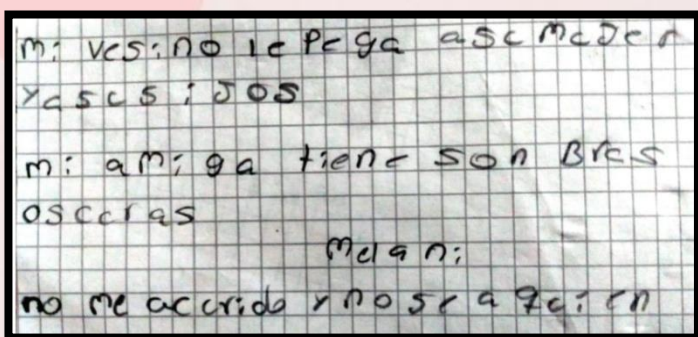 mi vesino le pega asc mejer
yasus ijos
mi amiga tiene sonBres
osceras
melani
no me accrido y no se a qeien